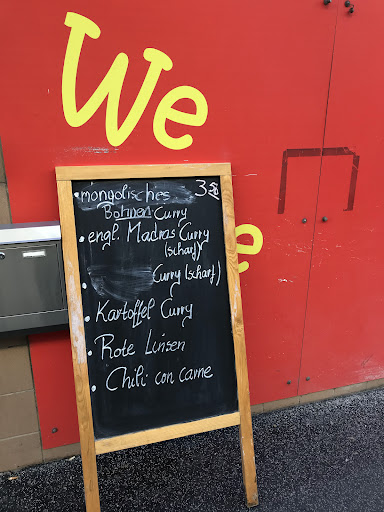 We
e
mongolisches 3,50
Bohnen-Curry
engl. Madras Curry
(scharf)
Curry (scharf)
Kartoffel Curry
Rote Linsen
Chili con carne